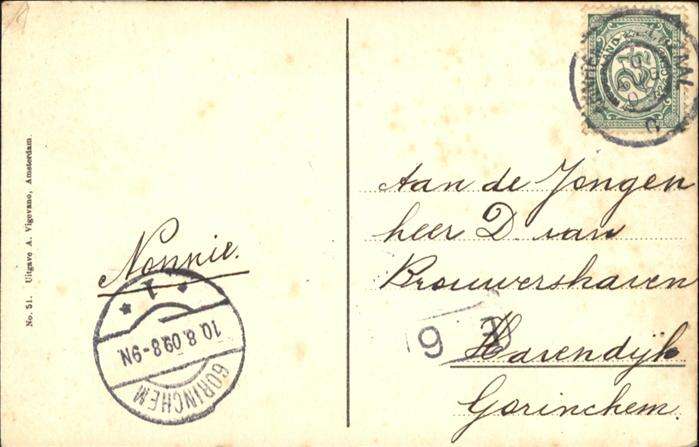 No. 51. Uitgave A. Vigevano, Amsterdam.
Nonnie.
GORINCHEM
10.8.09.8-9N
1
Aan de Jongen
heer D. van
Brouwershaven
Havendijk
Gorinchem.
9